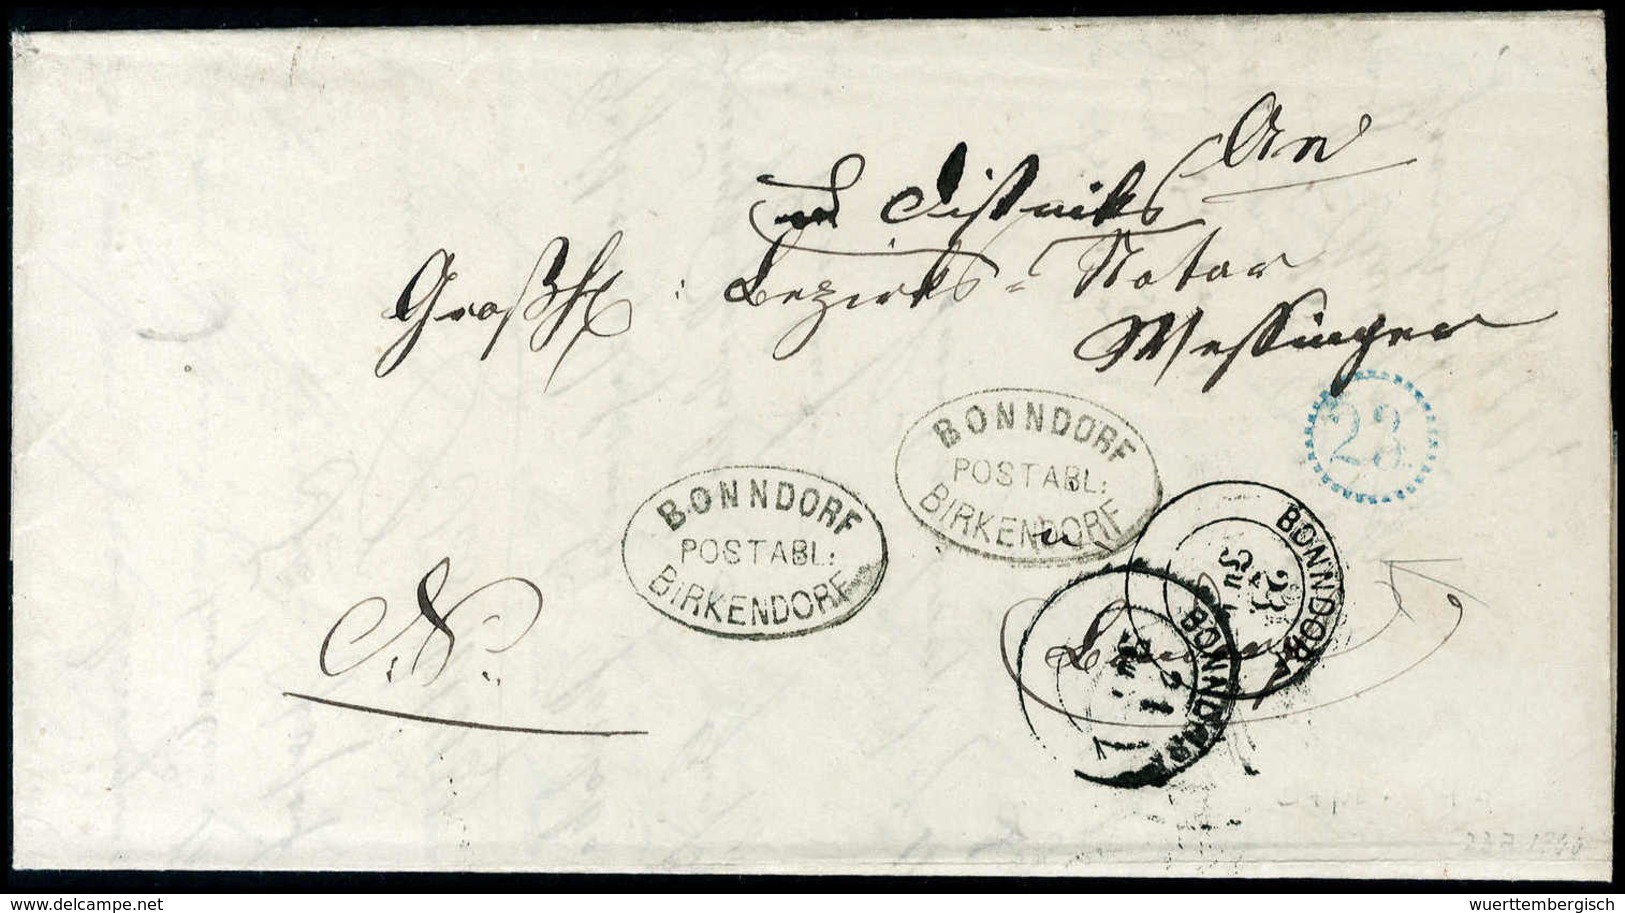 An
Distrikts
Großh : Bezirks - Notar
Messinger
23
BONNDORF
POSTABL:
BIRKENDORF
BONNDORF
POSTABL:
BIRKENDORF
BONNDORF
23
N.
BONNDORF
21
www.delcampe.net
wuerttembergisch